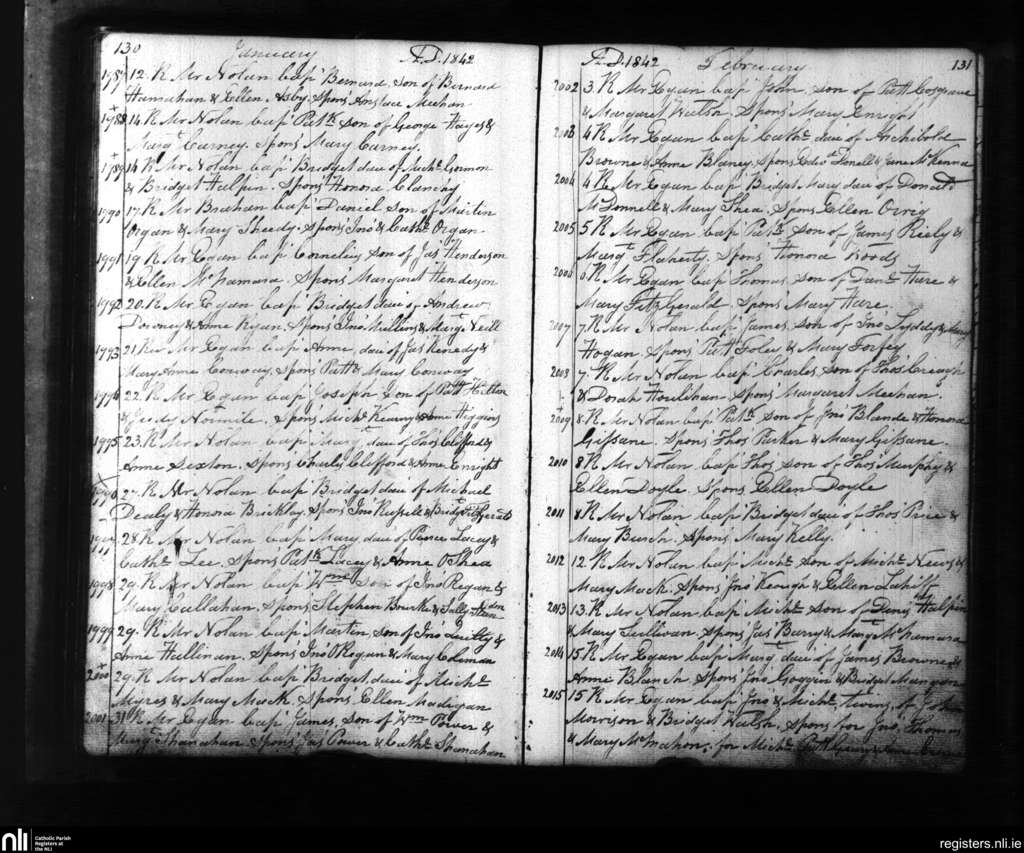 130 January A.D. 1842
1987 12. R Mr Nolan bap' Bernard, son of Bernard
Hanrahan & Ellen Asby. Spons' Anslace Meehan
1988 14 R Mr Nolan bap' Patk son of George Hayes &
Marg' Carney. Spons' Mary Carney.
1989 14 R Mr Nolan bap' Bridget dau' of Michl Gorman
& Bridget Halpin. Spons' Honora Clanchy
1990 17. R Mr Brahan bap' Daniel son of Martin
Organ & Mary Sheedy. Spons' Jno' & Cathe Organ
1991 19. R Mr Egan bap' Cornelius son of Jas' Henderson
& Ellen McNamara. Spons' Margaret Henderson
1992 20. R Mr Egan bap' Bridget dau' of Andrew
Downey & Anne Ryan. Spons' Jno' Mullins & Marg' Neill
1993 21 Rev Mr Egan bap' Anne, dau' of Jas' Kenedy &
Mary Anne Conway. Spons' Patt & Mary Conway
1994 22. R Mr Egan bap' Joseph son of Patt Hilton
Normile. Spons' Michl & Anne Higgins
1995 23. R Mr Nolan bap' Marg' dau' of Thos' Clifford &
Anne Sexton. Spons' Charles Clifford & Anne Enright
1996 27. R Mr Nolan bap' Bridget dau' of Michael
Dealy & Honora Brickley. Spons' Jno' Russell & Bridget Fitzgerald
28 R Mr Nolan bap' Mary, dau' of Pierce Lacey &
Cathe Lee. Spons' Patk Lacey & Anne O'Shea
1998 29. R Mr Nolan bap' Wm son of Jno' Regan &
Mary Callahan. Spons' Stephen Bourke & Sally
1999 29. R Mr Nolan bap' Martin son of Jno' Quilty &
Anne Hallinan. Spons' Jno' O'Regan & Mary Coleman
2000 29. R Mr Nolan bap' Bridget, dau' of Michl
Myres & Mary Mack. Spons' Ellen Madigan
2001 31 R Mr Egan bap' James, son of Wm Power &
Marg' Shanahan. Spons' Jas' Power & Cathe Shanahan
A.D. 1842 February 131
2002 3 R Mr Egan bap' John son of Patt Cosgrave
& Margaret Walsh. Spons' Mary Enright
2003 4 R Mr Egan bap' Cathe dau' of Archibold
Browne & Anne Blaney. Spons' Edwd & Jane McKenna
2004 4 R Mr Egan bap' Bridget Mary dau' of Donald
McDonnell & Mary Shea. Spons' Ellen
2005 5 R Mr Egan bap' Patk son of James Riely &
Marg' Flaherty. Spons' Honora Woods
6 R Mr Egan bap' Thomas son of Danl Hare &
Mary Fitzgerald. Spons' Mary Hare
2007 7 R Mr Nolan bap' James, son of Jno' Lyddy &
Hogan. Spons' Patt Foley & Mary
2008 7 R Mr Nolan bap' Charles, son of Thos' Creagh
& Dorah Houlihan. Spons' Margaret Meehan.
2009 8. R Mr Nolan bap' Patk son of Jno' Blande & Honora
Gissane. Spons' Thos' Parker & Mary Gissane.
2010 8 R Mr Nolan bap' Thos' son of Thos' Murphy &
Ellen Doyle. Spons' Ellen Doyle
2011 8 R Mr Nolan bap' Bridget dau' of Thos' Price &
Mary Burch. Spons' Mary Kelly.
2012 12 R Mr Nolan bap' Michl son of Michl News &
Mary Mack. Spons' Jno' Keough & Ellen Lahiff
2013 13. R Mr Nolan bap' Michl son of Deny Halpin
& Mary Sullivan. Spons' Jas' Barry & Marg' McNamara
2014 15 R Mr Egan bap' Marg' dau' of James Browne &
Anne Blanch. Spons' Jno' Goggin & Bridget Mangan
2015 15 R Mr Egan bap' Jno' & Michl, twins, of John
Morrison & Bridget Walsh. Spons' for Jno', Thomas
& Mary McMahon, for Michl Patt
nli Catholic Parish
Registers at
the NLI
registers.nli.ie